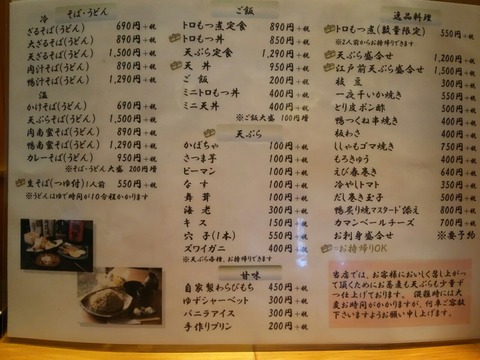 冷 そば・うどん
ざるそば(うどん) 690円+税
大ざるそば(うどん) 890円+税
天ざるそば(うどん) 1,500円+税
肉汁そば(うどん) 1,090円+税
鴨汁そば(うどん) 1,290円+税
温
かけそば(うどん) 690円+税
天ぷらそば(うどん) 1,500円+税
肉南蛮そば(うどん) 890円+税
鴨南蛮そば(うどん) 1,290円+税
カレーそば(うどん) 950円+税
※そば・うどん大盛 200円増
生そば(つゆ付)1人前 550円+税
※うどんはゆで時間が10分程かかります
ご飯
トロもつ煮定食 890円+税
トロもつ丼 850円+税
天ぷら定食 1,290円+税
天丼 950円+税
ご飯 200円+税
ミニトロもつ丼 400円+税
ミニ天丼 400円+税
※ご飯大盛 100円増
天ぷら
かぼちゃ 100円+税
さつま芋 100円+税
ピーマン 100円+税
なす 100円+税
舞茸 100円+税
海老 300円+税
キス 150円+税
穴子(1本) 550円+税
ズワイガニ 400円+税
※天ぷら各種、お持帰りできます
甘味
自家製わらびもち 450円+税
ゆずシャーベット 300円+税
バニラアイス 300円+税
手作りプリン 200円+税
逸品料理
トロもつ煮(数量限定) 550円+税
※2人前からお持帰りできます
天ぷら盛合せ 1,200円+税
江戸前天ぷら盛合せ 1,500円+税
枝豆
一夜干いか焼き 550円+税
とり皮ポン酢 500円+税
鴨つくね串焼き 400円+税
板わさ 400円+税
ししゃもゴマ焼き 750円+税
もろきゅう 400円+税
えび春巻き 640円+税
冷やしトマト 350円+税
だし巻き玉子 500円+税
鴨炙り焼マスタード添え 800円+税
カマンベールチーズ 700円+税
お刺身盛合せ ※要予約
=お持帰りOK
当店では、お客様においしく召し上がっ
て頂くためにお蕎麦も天ぷらも少量ず
つ仕上げております。混雑時には大
変お時間がかかりますが、何卒ご容赦
下さいますようお願い申し上げます。